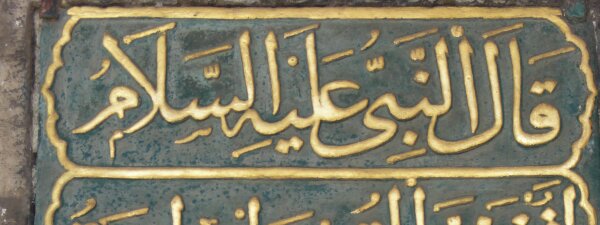 قَالَ النَّبِىُّ عَلَيْهِ السَّلَامُ